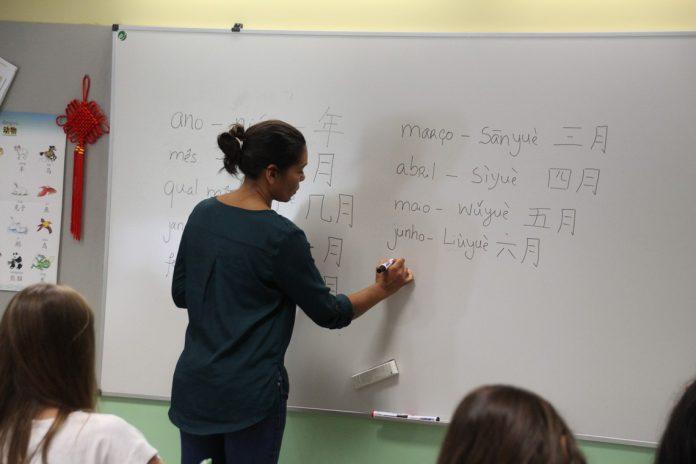 动物
ano - 年
mês 月
qual 几月
jan 月
月
março - Sānyuè 三月
abril - Sìyuè 四月
maio - Wǔyuè 五月
junho - Liùyuè 六月